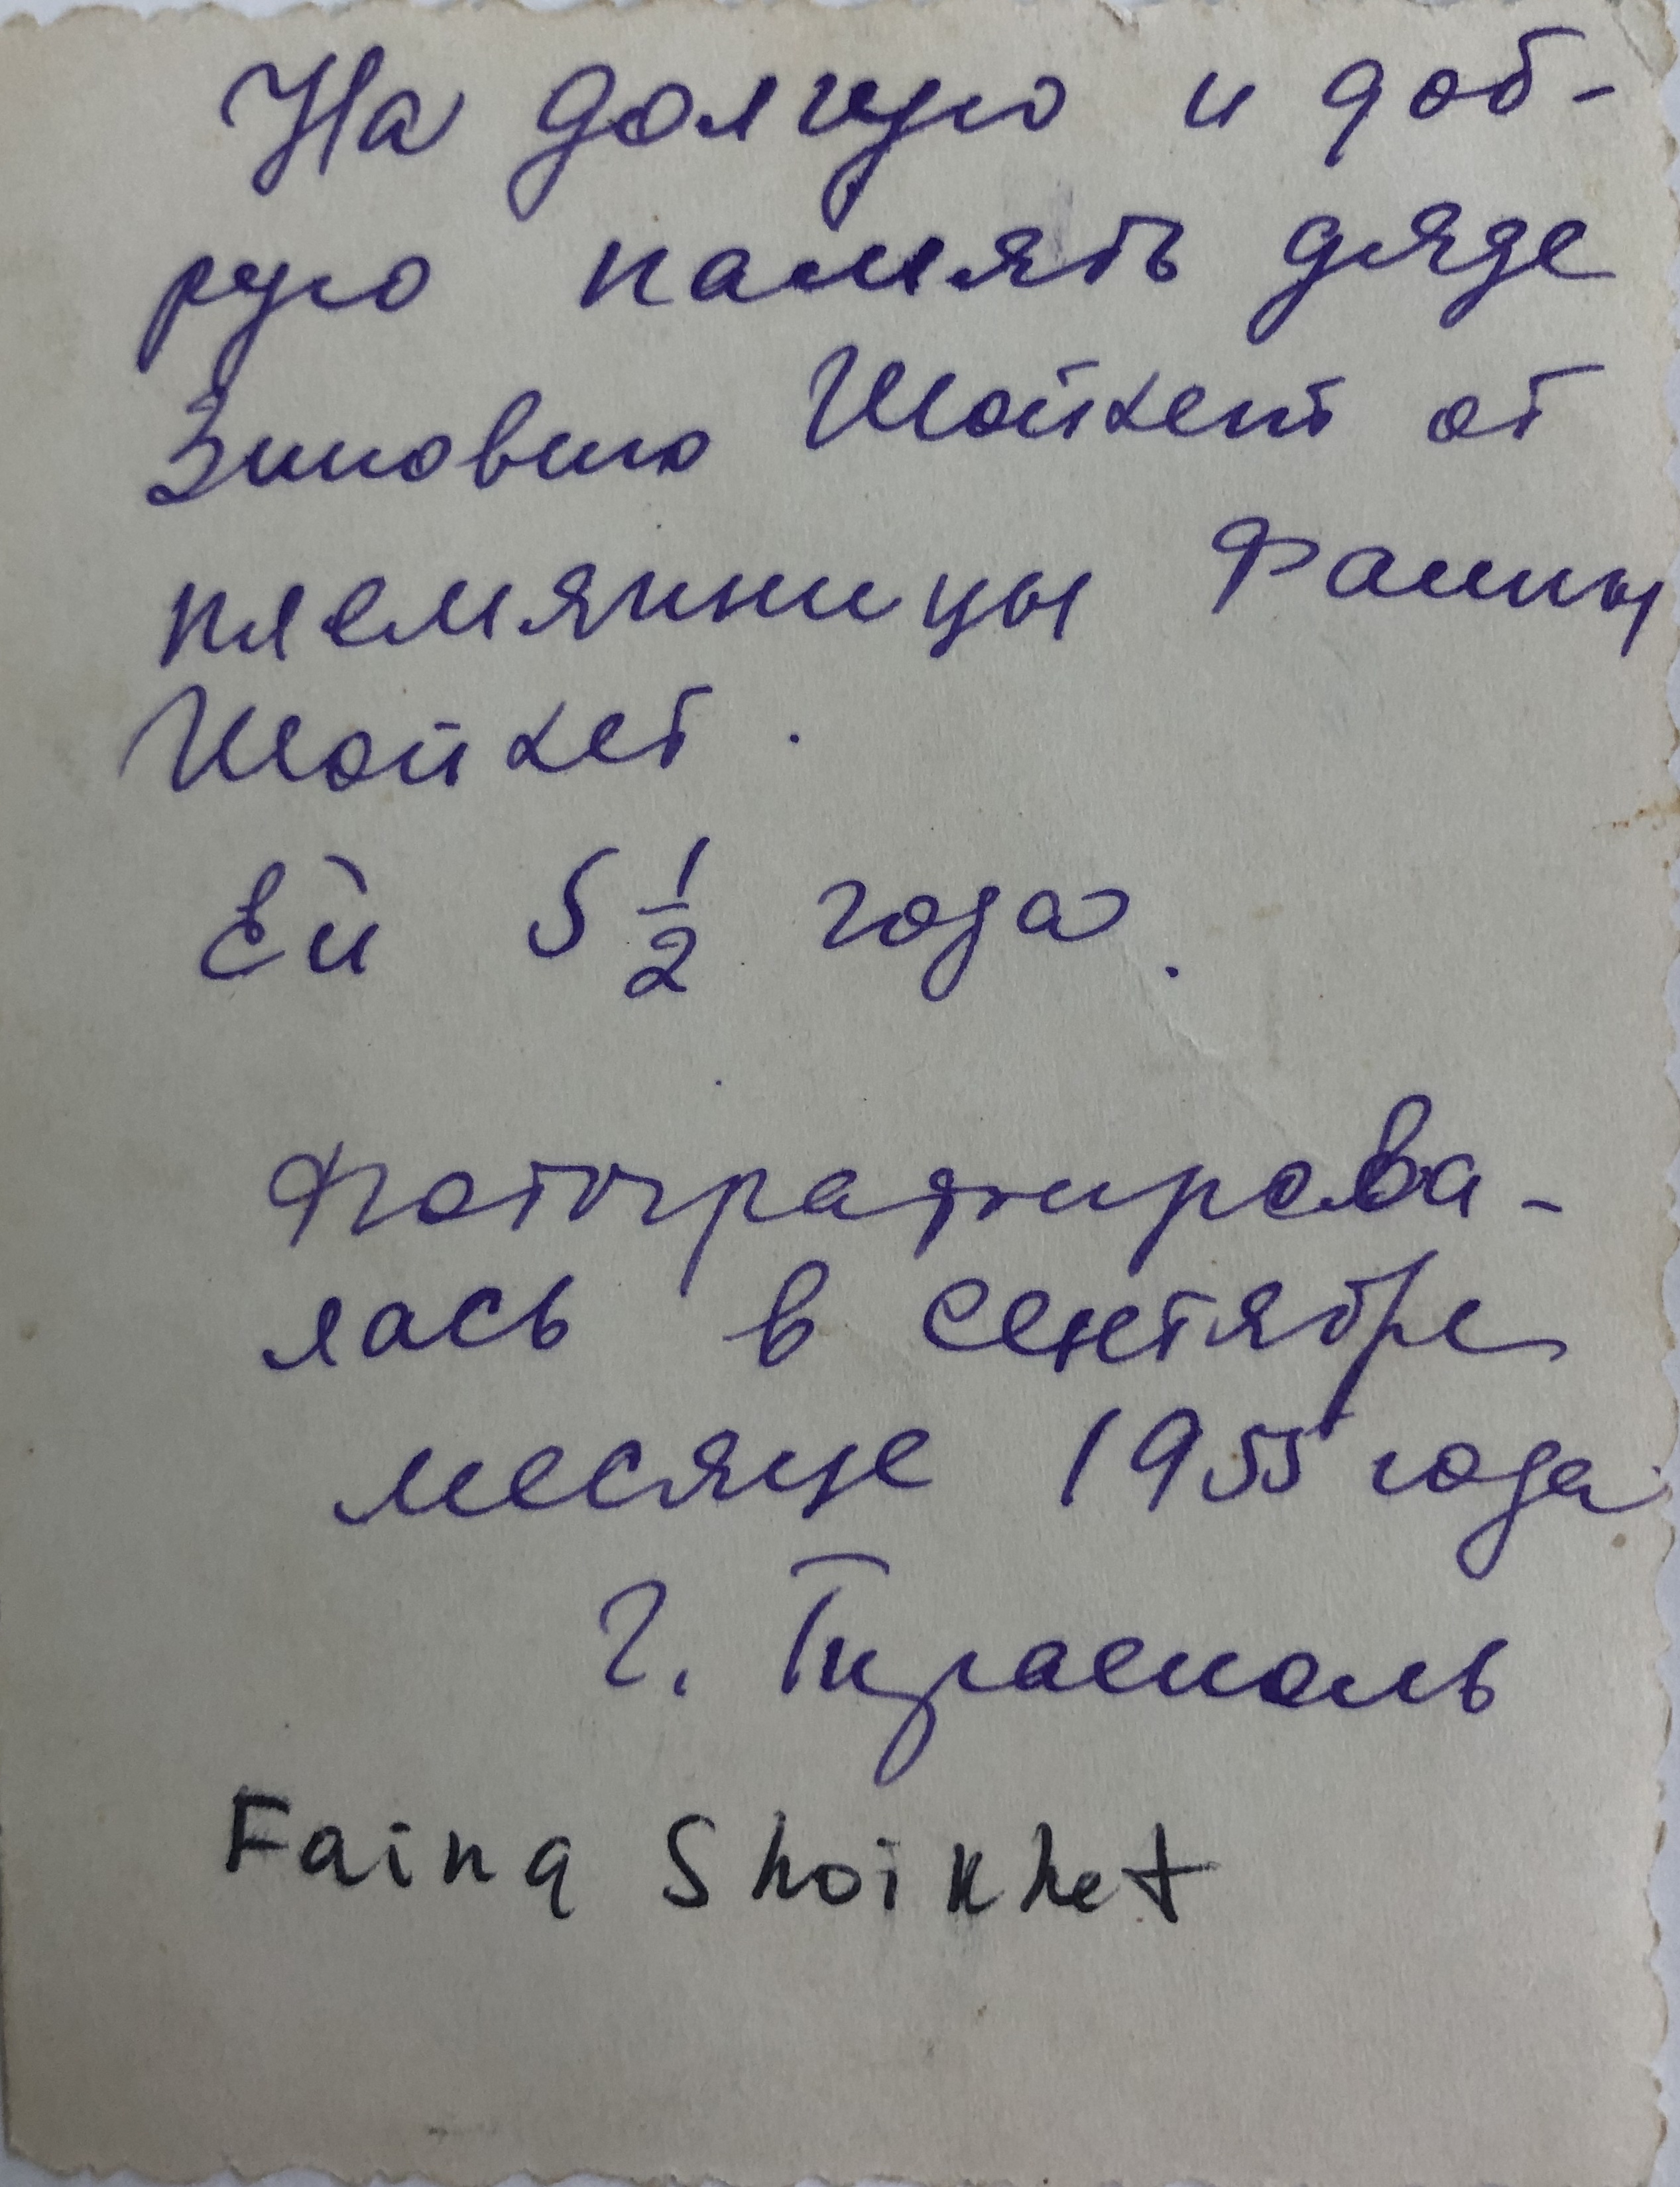 На долгую и доб-
рую память дяде
Зиновию Шойхет от
племянницы Фаины
Шойхет.
Ей 5 1/2 года.
Фотографирова-
лась в сентябре
месяце 1955 года
г. Тирасполь
Faina Shoikhet